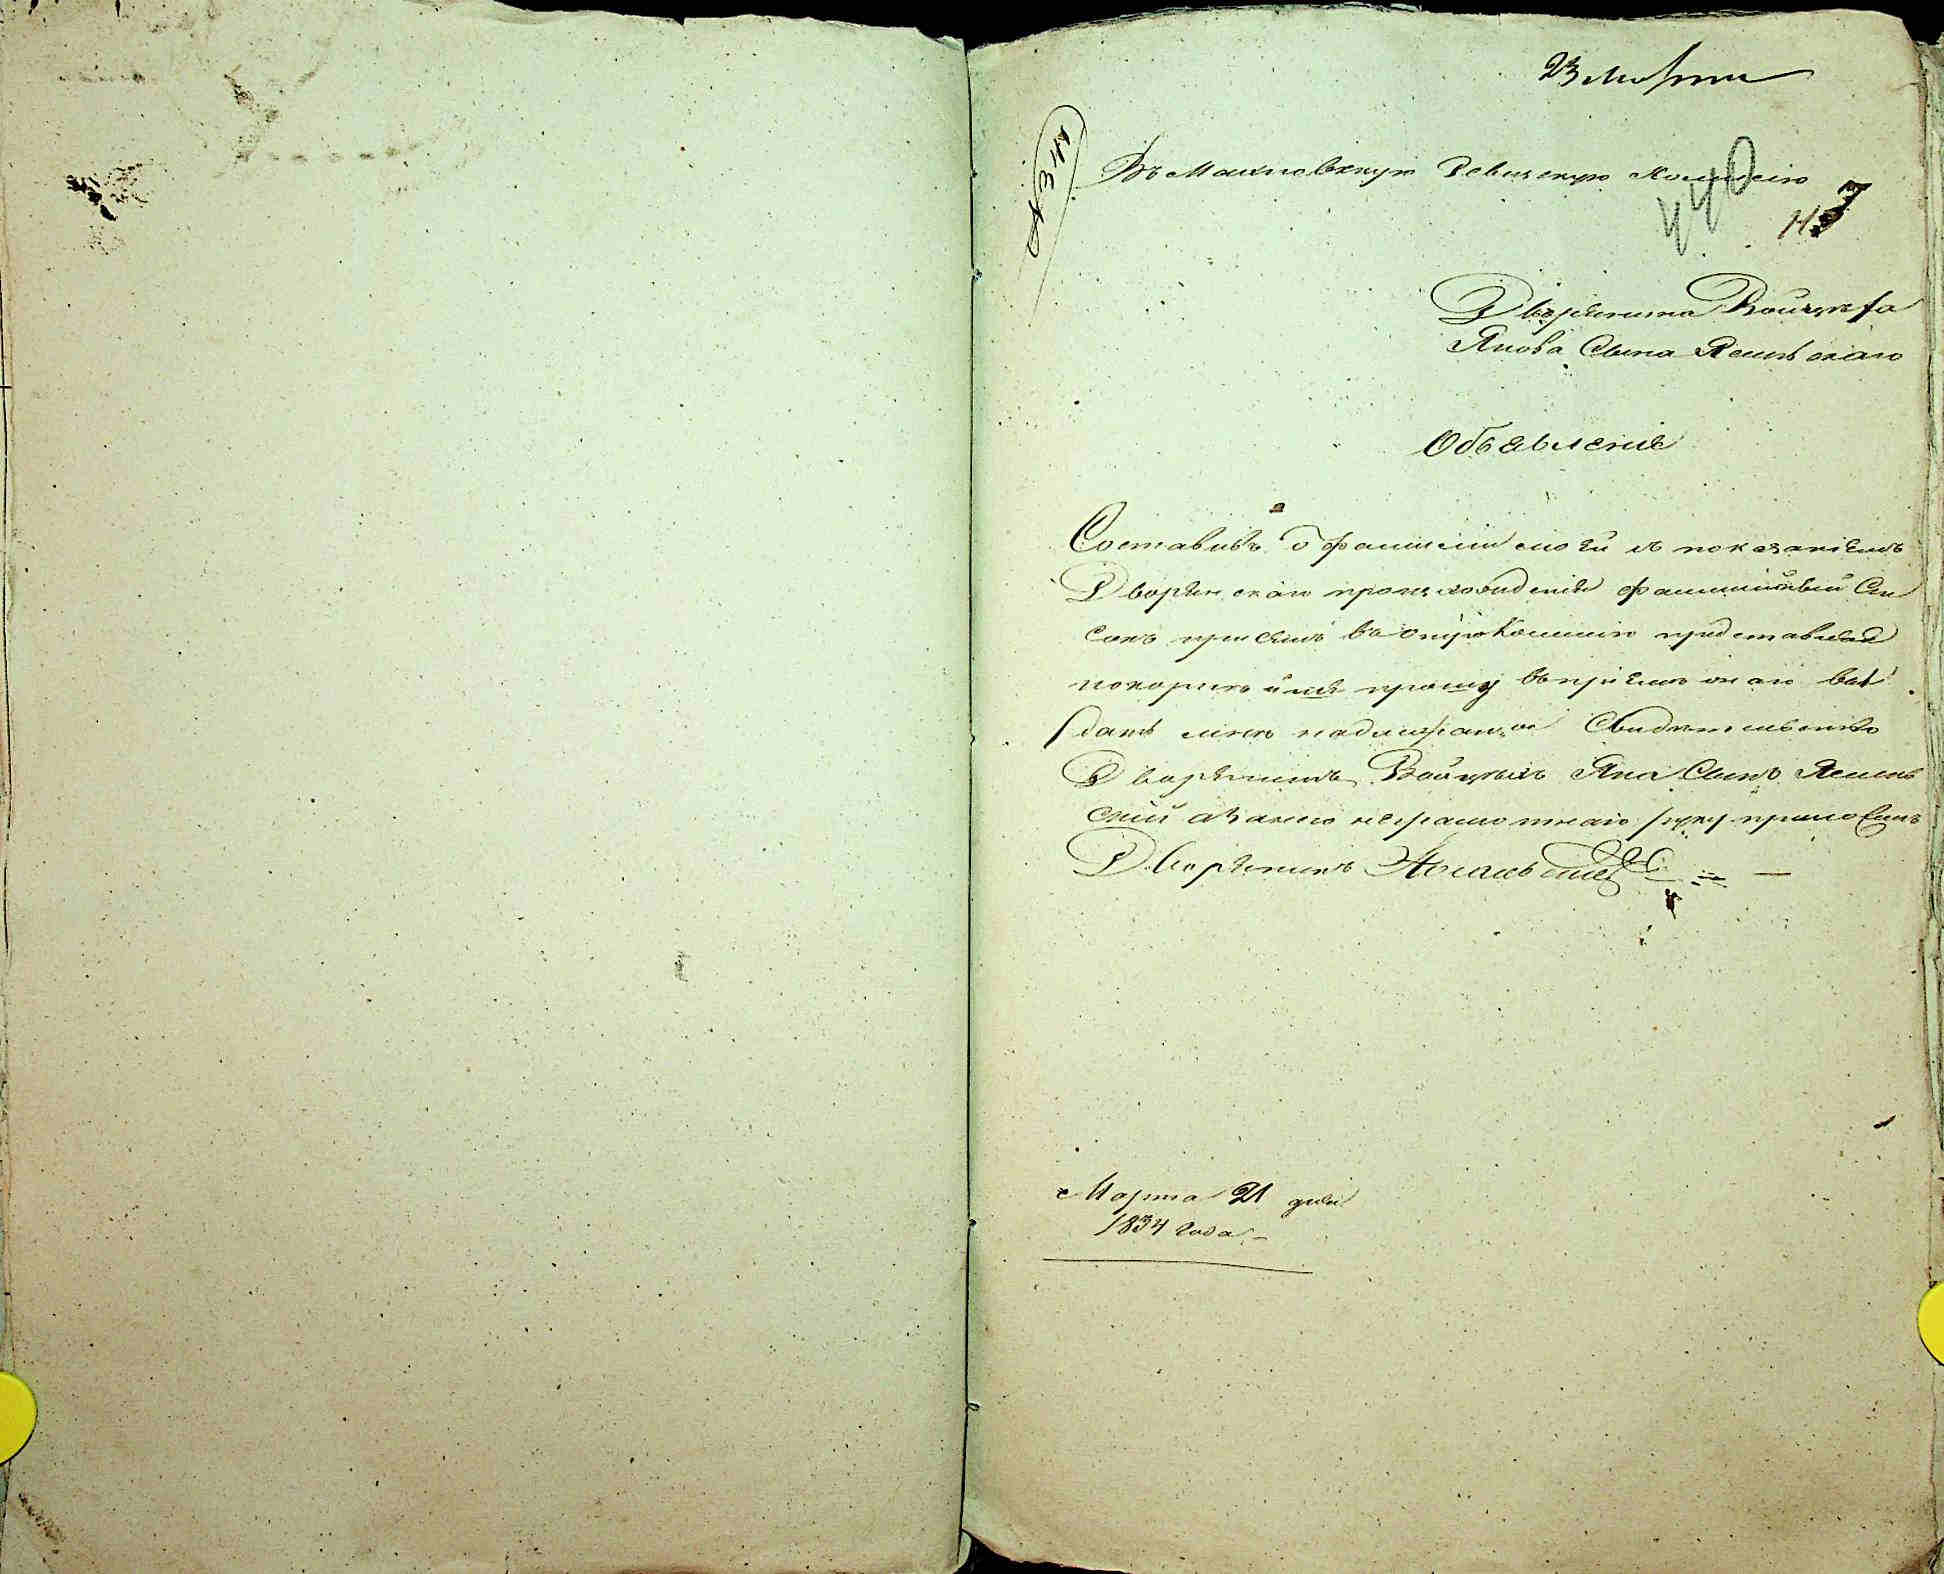 23 Марта
Въ Махновскую Ревизскую Комисію
440
Дворянина Войцеха
Янова Сына Ясинскаго
Объявленіе
Составивъ о фамиліи моей съ показаніемъ
Дворянскаго происхожденія фамилійный Спи
сокъ при семъ въ оную Комисию представляя
покорнейше прошу въ пріеме онаго вы
дать мне надлежащое Свидетельство
Дворянинъ Войцехъ Яна Сынъ Ясинь
скій а за него неграмотнаго руку приложилъ
Дворянинъ
Марта 21 дня
1834 года